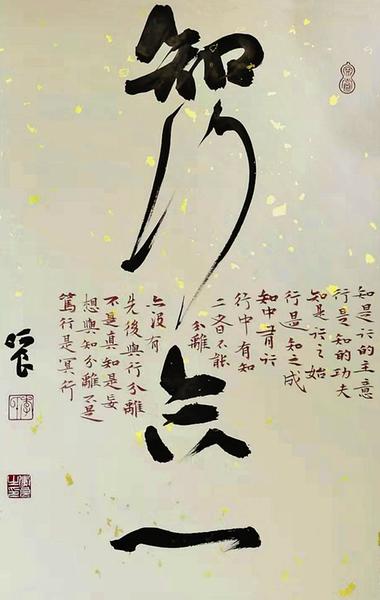 知行合一
知是行的主意
行是知的功夫
知是行之始
行是知之成
知中有行
行中有知
二者不能
分離
沒有
先後與行分離
不是真知是妄
想與知分離不是
篤行是冥行